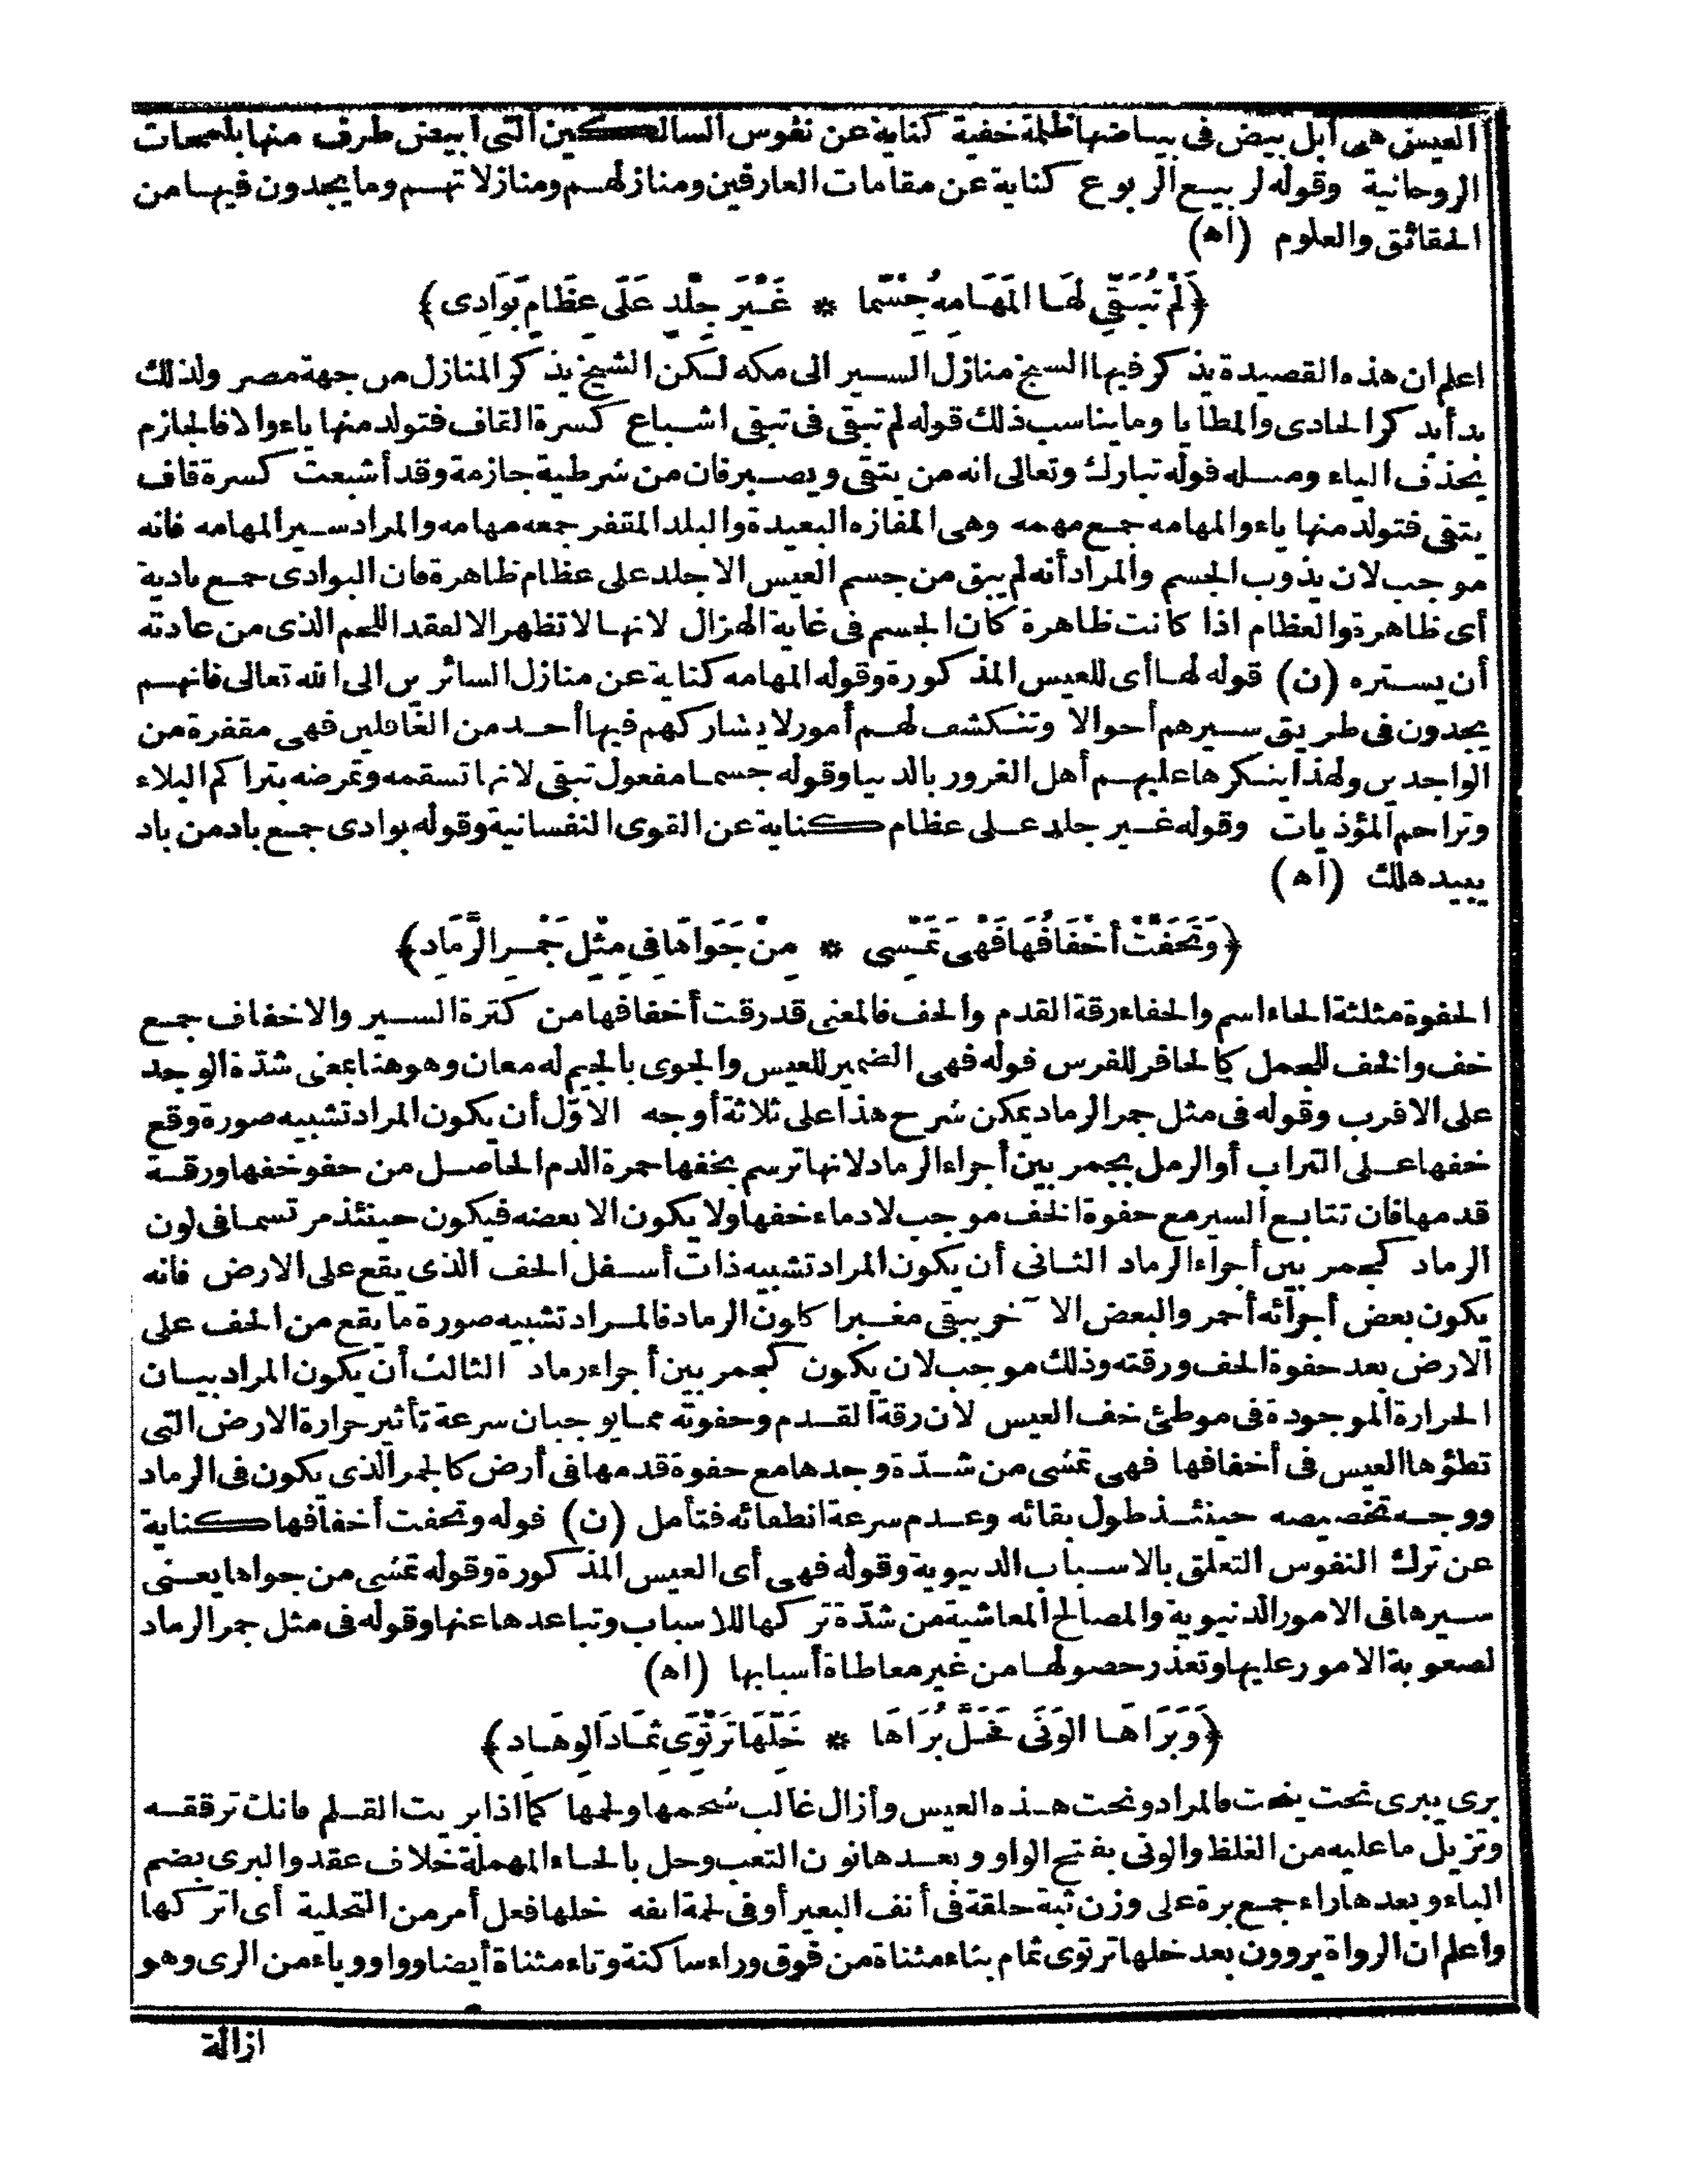 العيس هى ابل بيض فى بياضها ظلمة خفية كناية عن نفوس السالكين التى ابيض طرف منها بلمسات
الروحانية وقوله لربيع الربوع كناية عن مقامات العارفين ومنازلهم ومنازلاتهم وما يجدون فيها من
الحقائق والعلوم (اه)
﴿لَمْ تُبَقِّى لَهَا المَهَامِهُ جِسْمًا * غَيْرَ جِلْدٍ عَلَى عِظَامٍ بَوَادِى﴾
اعلم ان هذه القصيدة يذكر فيها الشيخ منازل السير الى مكه لكن الشيخ يذكر المنازل من جهة مصر ولذلك
بدأ بذكر الحادى والمطايا وما يناسب ذلك قوله لم تبقى فى تبقى اشباع كسرة القاف فتولد منها ياء والا فالجازم
يحذف الياء ومثله قوله تبارك وتعالى انه من يتقى ويصبر فان من شرطية جازمة وقد أشبعت كسرة قاف
يتقى فتولد منها ياء والمهامه جمع مهمه وهى المفازه البعيدة والبلد المقفر جمعه مهامه والمراد سير المهامه فانه
موجب لان يذوب الجسم والمراد أنه لم يبق من جسم العيس الا جلد على عظام ظاهرة فان البوادى جمع بادية
أى ظاهرة والعظام اذا كانت ظاهرة كان الجسم فى غاية الهزال لانها لا تظهر الا لفقد اللحم الذى من عادته
أن يستره (ن) قوله لها أى للعيس المذكورة وقوله المهامه كناية عن منازل السائرين الى الله تعالى فانهم
يجدون فى طريق سيرهم أحوالا وتنكشف لهم أمور لا يشاركهم فيها أحد من الغافلين فهى مقفرة من
الواجدين ولهذا ينكرها عليهم أهل الغرور بالدنيا وقوله جسما مفعول تبقى لانها تسقمه وتمرضه بتراكم البلاء
وتراحم المؤذيات وقوله غير جلد على عظام كناية عن القوى النفسانية وقوله بوادى جمع باد من باد
يبيد هلك (اه)
﴿وَتَحَفَّتْ أَخْفَافُهَا فَهْىَ تَمْشِى * مِنْ جَوَاهَا فِى مِثْلِ جَمْرِ الرَّمَادِ﴾
الحفوة مثلثة الحاء اسم والحفاء رقة القدم والخف فالمعنى قد رقت أخفافها من كثرة السير والاخفاف جمع
خف والخف للجمل كالحافر للفرس قوله فهى الضمير للعيس والجوى بالجيم له معان وهو هنا بمعنى شدّة الوجد
على الاقرب وقوله فى مثل جمر الرماد يمكن شرح هذا على ثلاثة أوجه الاوّل أن يكون المراد تشبيه صورة وقع
خفها على التراب أو الرمل بجمر بين أجزاء الرماد لانها ترسم بخفها حمرة الدم الحاصل من حفو خفها ورقة
قدمها فان تتابع السير مع حفوة الخف موجب لادماء خفها ولا يكون الا بعضه فيكون حينئذ مرتسما فى لون
الرماد كجمر بين أجزاء الرماد الثانى أن يكون المراد تشبيه ذات أسفل الخف الذى يقع على الارض فانه
يكون بعض أجزائه أحمر والبعض الآخر يبقى مغبرا كلون الرماد فالمراد تشبيه صورة ما يقع من الخف على
الارض بعد حفوة الخف ورقته وذلك موجب لان يكون كجمر بين أجزاء رماد الثالث أن يكون المراد بيان
الحرارة الموجودة فى موطئ خف العيس لان رقة القدم وحفوته مما يوجبان سرعة تأثير حرارة الارض التى
تطؤها العيس فى أخفافها فهى تمشى من شدّة وجدها مع حفوة قدمها فى أرض كالجمر الذى يكون فى الرماد
ووجه تخصيصه حينئذ طول بقائه وعدم سرعة انطفائه فتأمل (ن) قوله وتحفت أخفافها كناية
عن ترك النفوس التعلق بالاسباب الدنيوية وقوله فهى أى العيس المذكورة وقوله تمشى من جواها يعنى
سيرها فى الامور الدنيوية والمصالح المعاشية من شدّة تركها للاسباب وتباعدها عنها وقوله فى مثل جمر الرماد
لصعوبة الامور عليها وتعذر حصولها من غير معاطاة أسبابها (اه)
﴿وَبَرَاهَا الوَنَى فَحَلَّ بُرَاهَا * خَلِّهَا تَرْتَوِى ثِمَادَ الوِهَادِ﴾
برى يبرى نحت ينحت فالمراد ونحت هذه العيس وأزال غالب شحمها ولحمها كما اذا بريت القلم فانك ترققه
وتزيل ما عليه من الغلظ والونى بفتح الواو وبعدها نون التعب وحل بالحاء المهملة خلاف عقد والبرى بضم
الباء وبعدها راء جمع برة على وزن ثبة حلقة فى أنف البعير أو فى لحمة انفه خلها فعل أمر من التخلية أى اتركها
واعلم ان الرواة يروون بعد خلها ترتوى ثمام بتاء مثناة من فوق وراء ساكنة وتاء مثناة أيضا وواو وياء من الرى وهو
ازالة